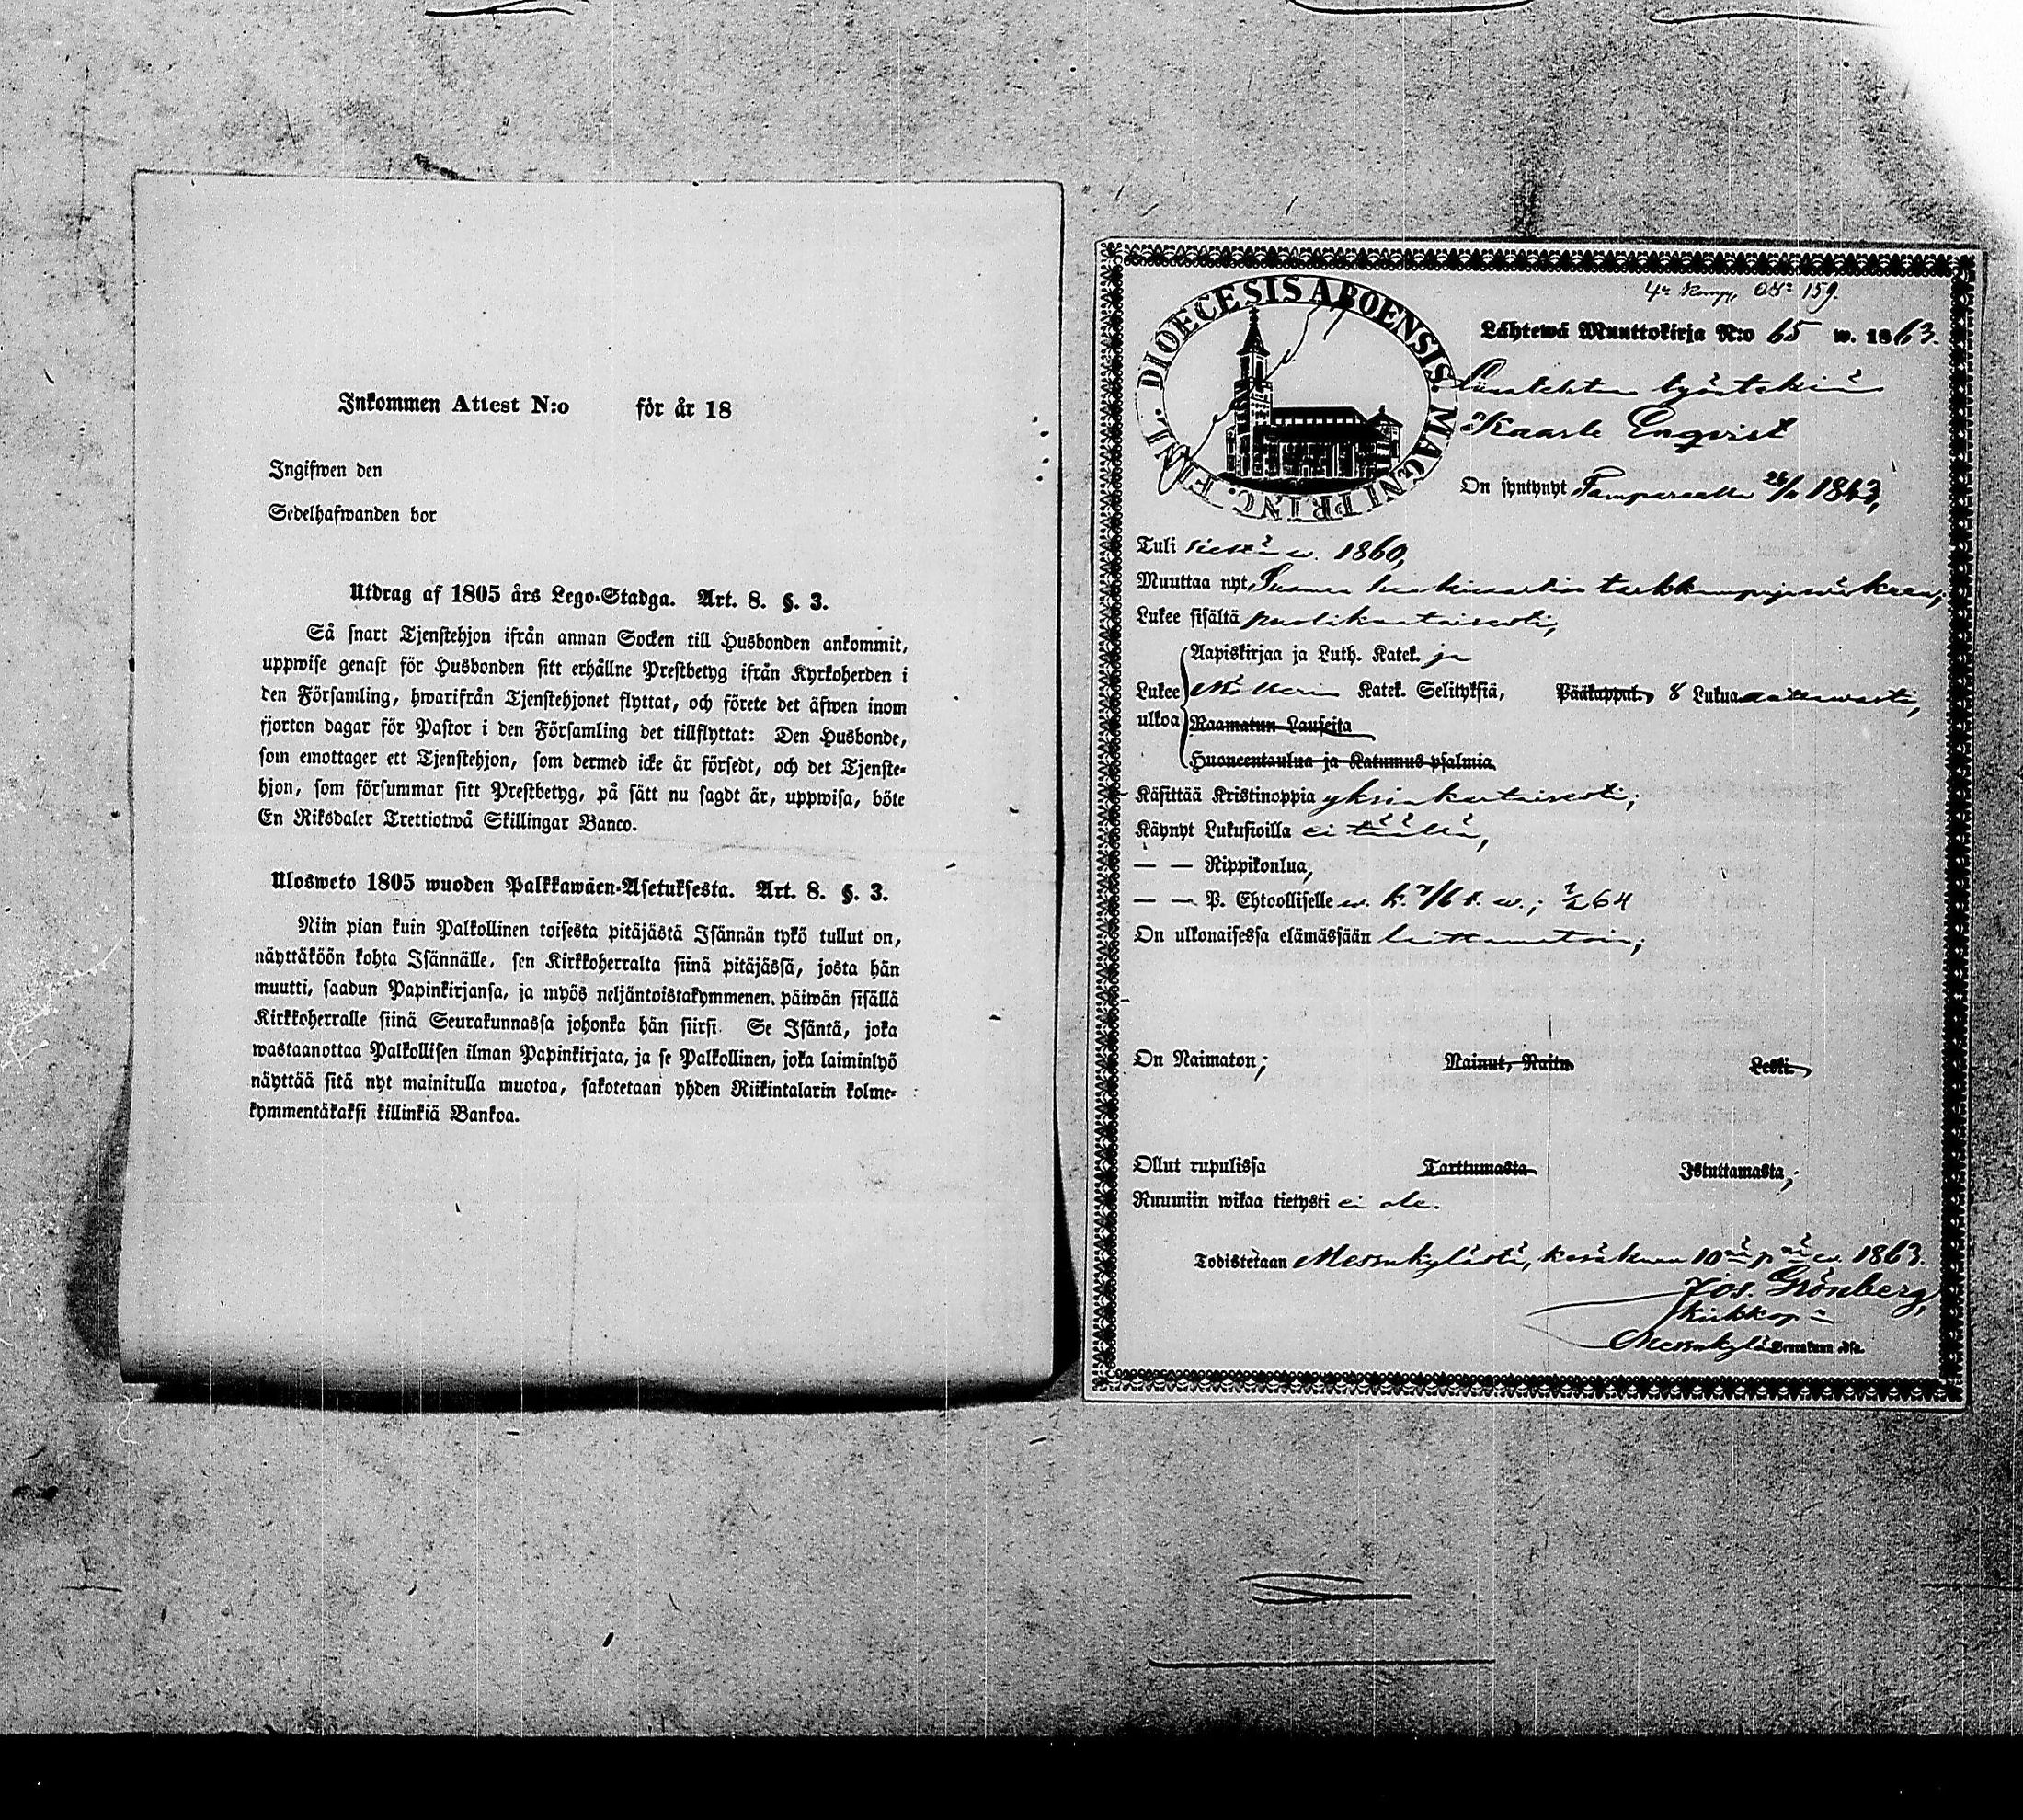 Inkommen Attest N:o för år 18
Ingifwen den
Sedelhafwanden bor
Utdrag af 1805 års Lego-Stadga. Art. 8. §. 3.
Så snart Tjenstehjon ifrån annan Socken till Husbonden ankommit,
uppwise genast för Husbonden sitt erhållne Prestbetyg ifrån Kyrkoherden i
den Församling, hwarifrån Tjenstehjonet flyttat, och förete det äfwen inom
fjorton dagar för Pastor i den Församling det tillflyttat: Den Husbonde,
som emottager ett Tjenstehjon, som dermed icke är försedt, och det Tjenste-
hjon, som försummar sitt Prestbetyg, på sätt nu sagdt är, uppwisa, böte
En Riksdaler Trettiotwå Skillingar Banco.
Ulosweto 1805 wuoden Palkkawäen-Asetuksesta. Art. 8. §. 3.
Niin pian kuin Palkollinen toisesta pitäjästä Isännän tykö tullut on,
näyttäköön kohta Isännälle, sen Kirkkoherralta siinä pitäjässä, josta hän
muutti, saadun Papinkirjansa, ja myös neljäntoistakymmenen päiwän sisällä
Kirkkoherralle siinä Seurakunnassa johonka hän siirsi. Se Isäntä, joka
wastaanottaa Palkollisen ilman Papinkirjata, ja se Palkollinen, joka laiminlyö
näyttää sitä nyt mainitulla muotoa, sakotetaan yhden Riikintalarin kolme-
kymmentäkaksi killinkiä Bankoa.
DIOECESIS ABOENSIS. MAGNI PRINC. FINL.
4:e Komp. No 159.
Lähtewä Muuttokirja N:o 65 w. 1863.
Kaarle Enqvist
On syntynyt Tampereella 1843,
Tuli w. 1860,
Muuttaa nyt Suomen tarkkampujawäkeen,
Lukee sisältä puolikertaisesti,
Aapiskirjaa ja Luth. Katek. ja
Lukee ulkoa Möllerin Katek. Selityksiä, Pääkappal. 8 Lukua auttawasti,
Raamatun Lauseita
Huoneentaulua ja Katumus-psalmia
Käsittää Kristinoppia yksinkertaisesti;
Käynyt Lukusioilla ei täällä,
— — Rippikoulua,
— — P. Ehtoolliselle w. k. 7/6 t. w.;
On ulkonaisessa elämässään
On Naimaton; Nainut, Naitu Leski
Ollut rupulissa Tarttumasta Istuttamasta;
Ruumiin wikaa tietysti ei ole.
Todistetaan Messukylästä, kesäkuun 10nä p:nä w. 1863.
Jos. Grönberg,
Kirkkop:
Messukylä Seurakunnassa.